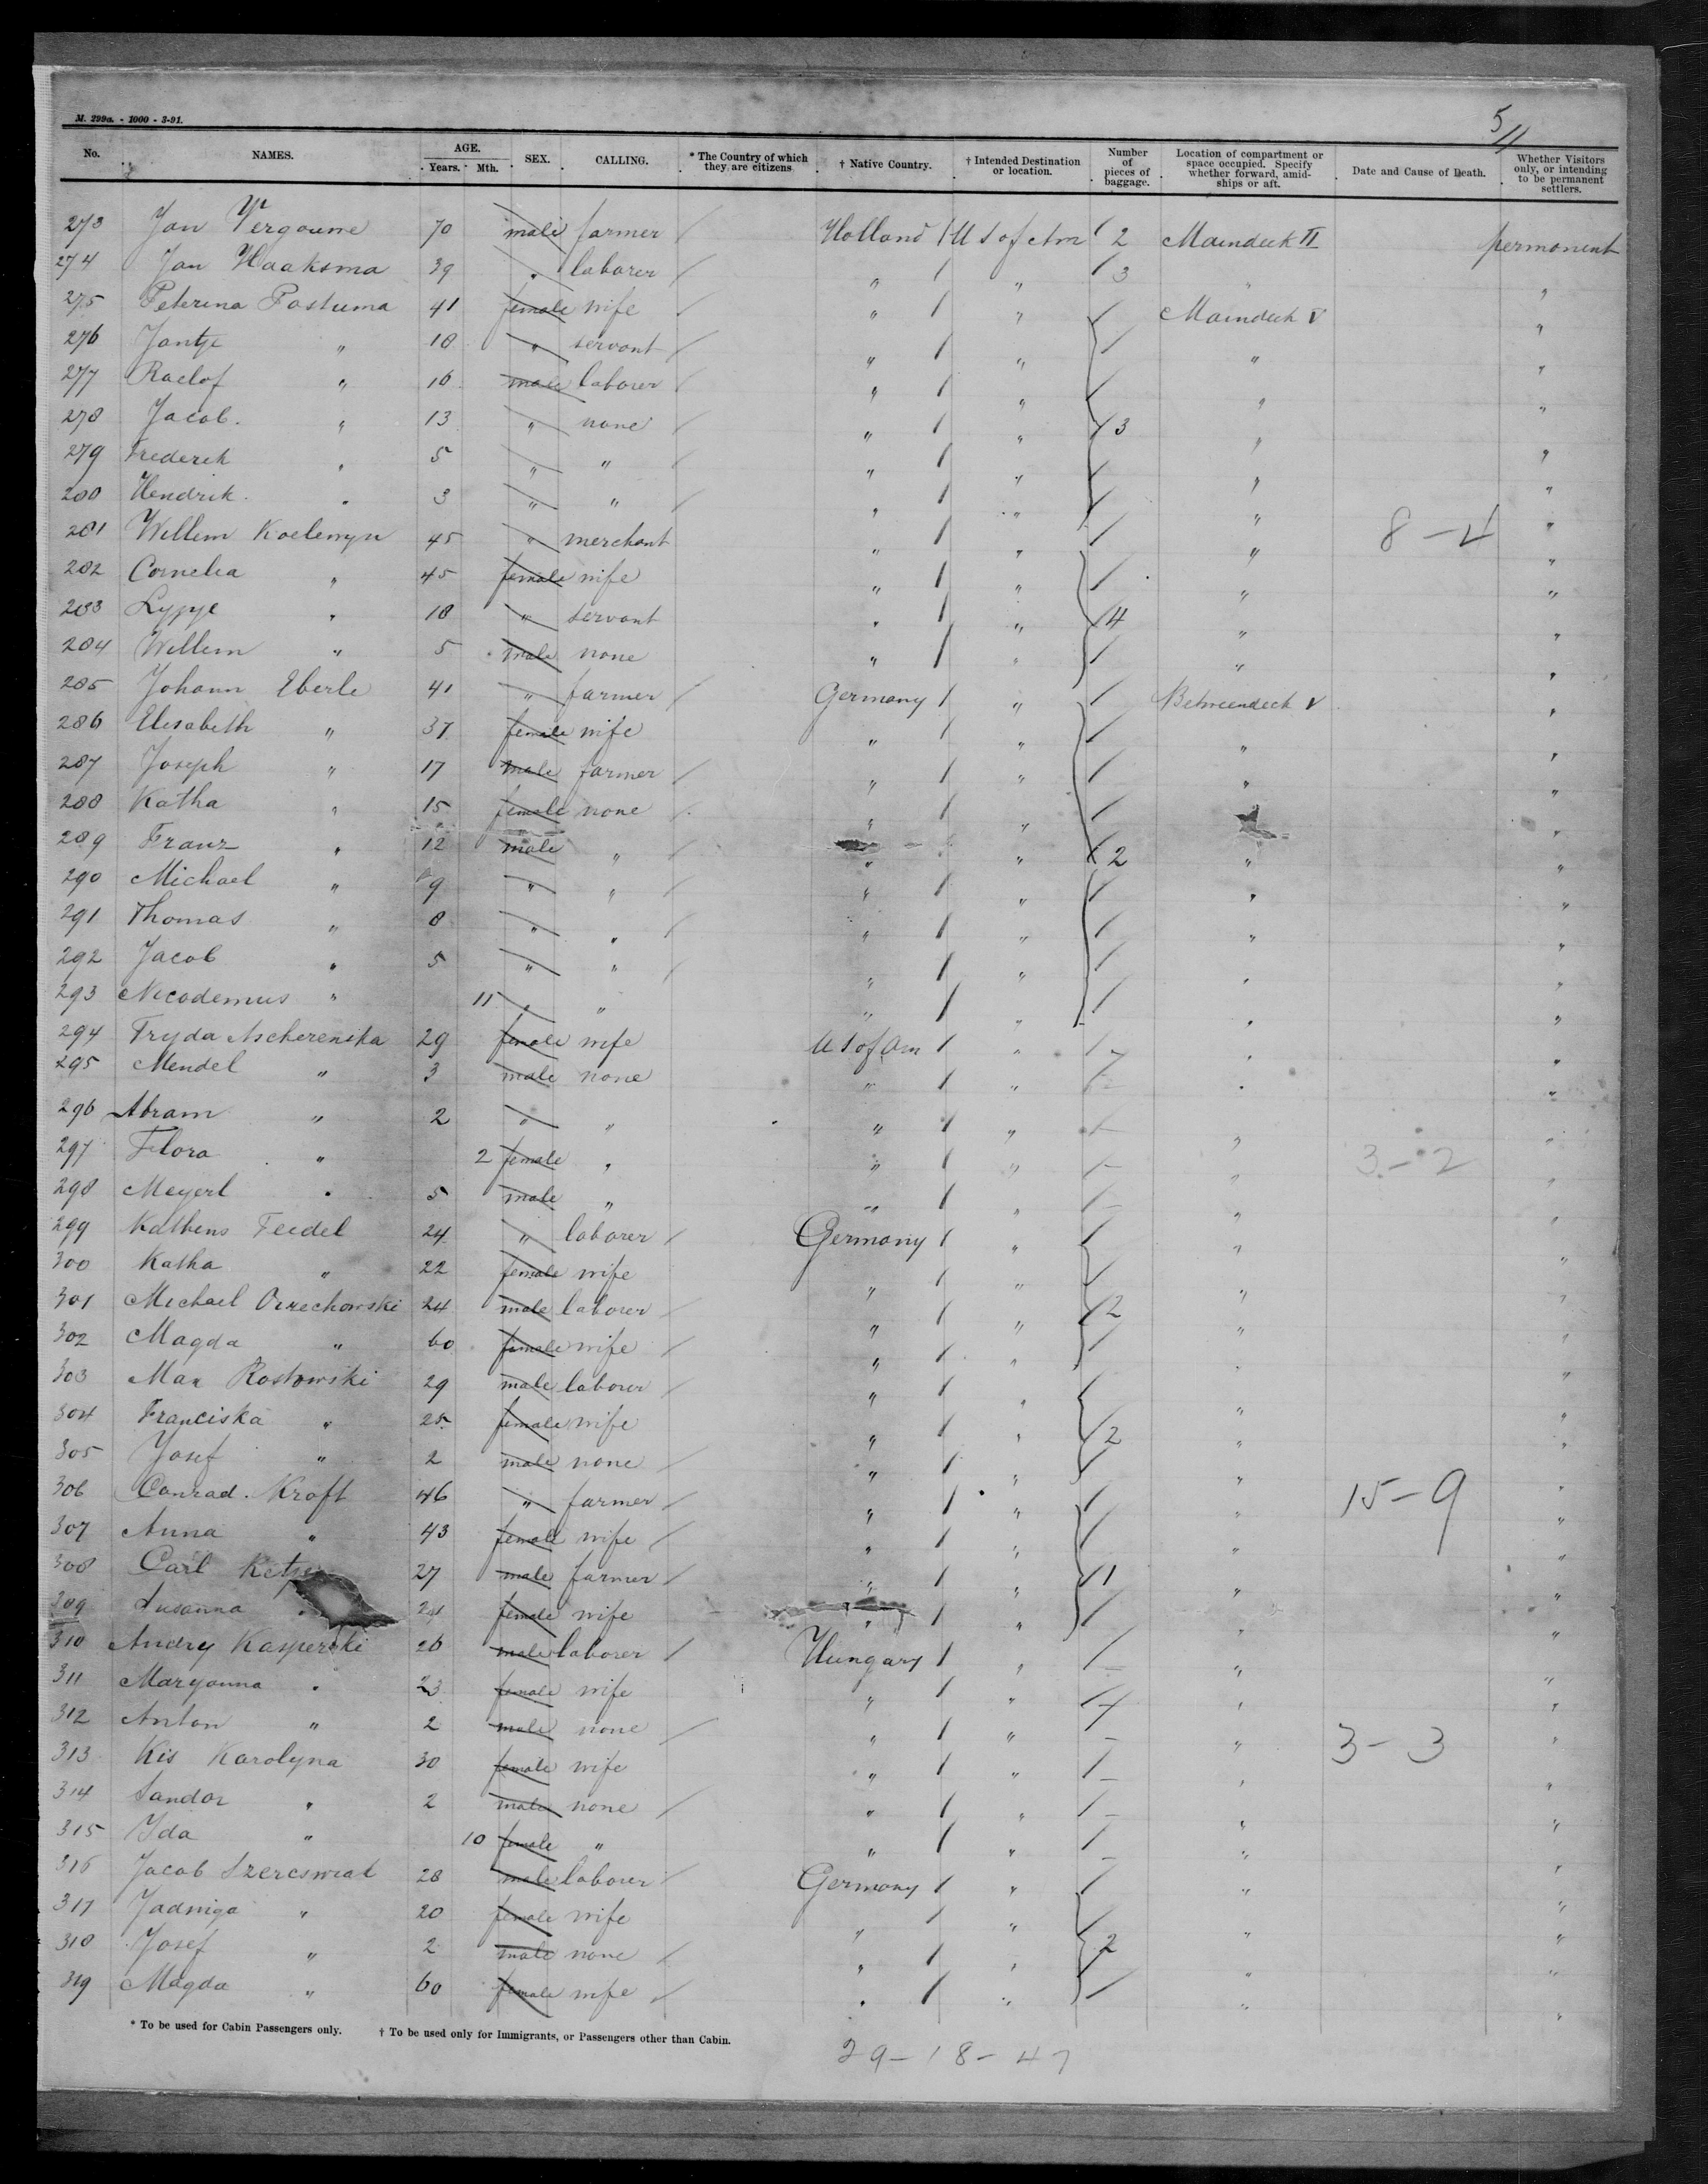 M. 299a. - 1000 - 3-91.
5/11
No. NAMES. AGE. Years. Mth. SEX. CALLING. * The Country of which they are citizens † Native Country. † Intended Destination or location. Number of pieces of baggage. Location of compartment or space occupied. Specify whether forward, amidships or aft. Date and Cause of Death. Whether Visitors only, or intending to be permanent settlers.
273 Jan Vergoume 70 male farmer / Holland / U S of Am / 2 Maindeck II permanent
274 Jan Haaksma 39 " laborer / " / " / 3 " "
275 Peterina Postuma 41 female wife / " / " Maindeck V "
276 Jantje " 18 " servant / " / " / " "
277 Raelof " 16 male laborer / " / " / " "
278 Jacob. " 13 " none / " / " / 3 " "
279 Frederik " 5 " " / " / " / " "
280 Hendrik " 3 " " / " / " / " "
281 Willem Koelewyn 45 " merchant " / " / " 8 - 4 "
282 Cornelia " 45 female wife " / " / " "
283 Lypye " 18 " servant " / " / 4 " "
284 Willem " 5 male none " / " / " "
285 Johann Eberle 41 " farmer / Germany / " / Betweendeck V "
286 Elisabeth " 37 female wife " / " / " "
287 Joseph " 17 male farmer / " / " / " "
288 Katha " 15 female none / " / " / "
289 Franz " 12 male " / " " / 2 " "
290 Michael " 9 " " / " / " / " "
291 Thomas " 8 " " / " / " / " "
292 Jacob " 5 " " / " / " / " "
293 Nicodemus " 11 " " " / " / " "
294 Fryda Ascherenska 29 female wife U S of Am / " / " "
295 Mendel " 3 male none " / " / " "
296 Abram " 2 " " " / " / " "
297 Flora " 2 female " " / " / " 3 - 2 "
298 Meyerl " 5 male " " / " / " "
299 Kathens Feedel 24 " laborer / Germany / " / " "
300 Katha " 22 female wife " / " / " "
301 Michael Orzechowski 24 male laborer / " / " / 2 " "
302 Magda " 60 female wife / " / " / " "
303 Max Rostowski 29 male laborer / " / " / " "
304 Franciska " 25 female wife " / " 2 " "
305 Josef " 2 male none / " / " / " "
306 Conrad Kroft 46 " farmer / " / " / " 15 - 9 "
307 Anna " 43 female wife / " / " / " "
308 Carl 27 male farmer / " / " / 1 " "
309 Susanna " 24 female wife " / " / " "
310 Andry Kasperski 26 male laborer / Hungary / " / " "
311 Maryanna " 23 female wife " / " / " "
312 Anton " 2 male none / " / " / " 3 - 3 "
313 Kis Karolyna 30 female wife " / " / " "
314 Sandor " 2 male none / " / " / " "
315 Ida " 10 female " " / " / " "
316 Jacob Szercswiat 28 male laborer / Germany / " / " "
317 Jadwiga " 20 female wife " / " / " "
318 Josef " 2 male none / " / " / 2 " "
319 Magda " 60 female wife / " / " / " "
* To be used for Cabin Passengers only. † To be used only for Immigrants, or Passengers other than Cabin.
29 - 18 - 47